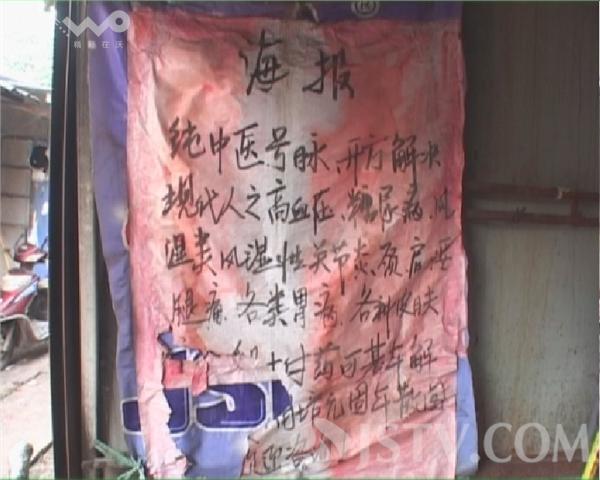 精彩在沃
海报
纯中医号脉、开方解决
现代人之高血压、糖尿病、风
湿类风湿性关节炎颈肩腰
腿痛、各类胃病、各种皮肤
十付药可基本解
JSTV.COM